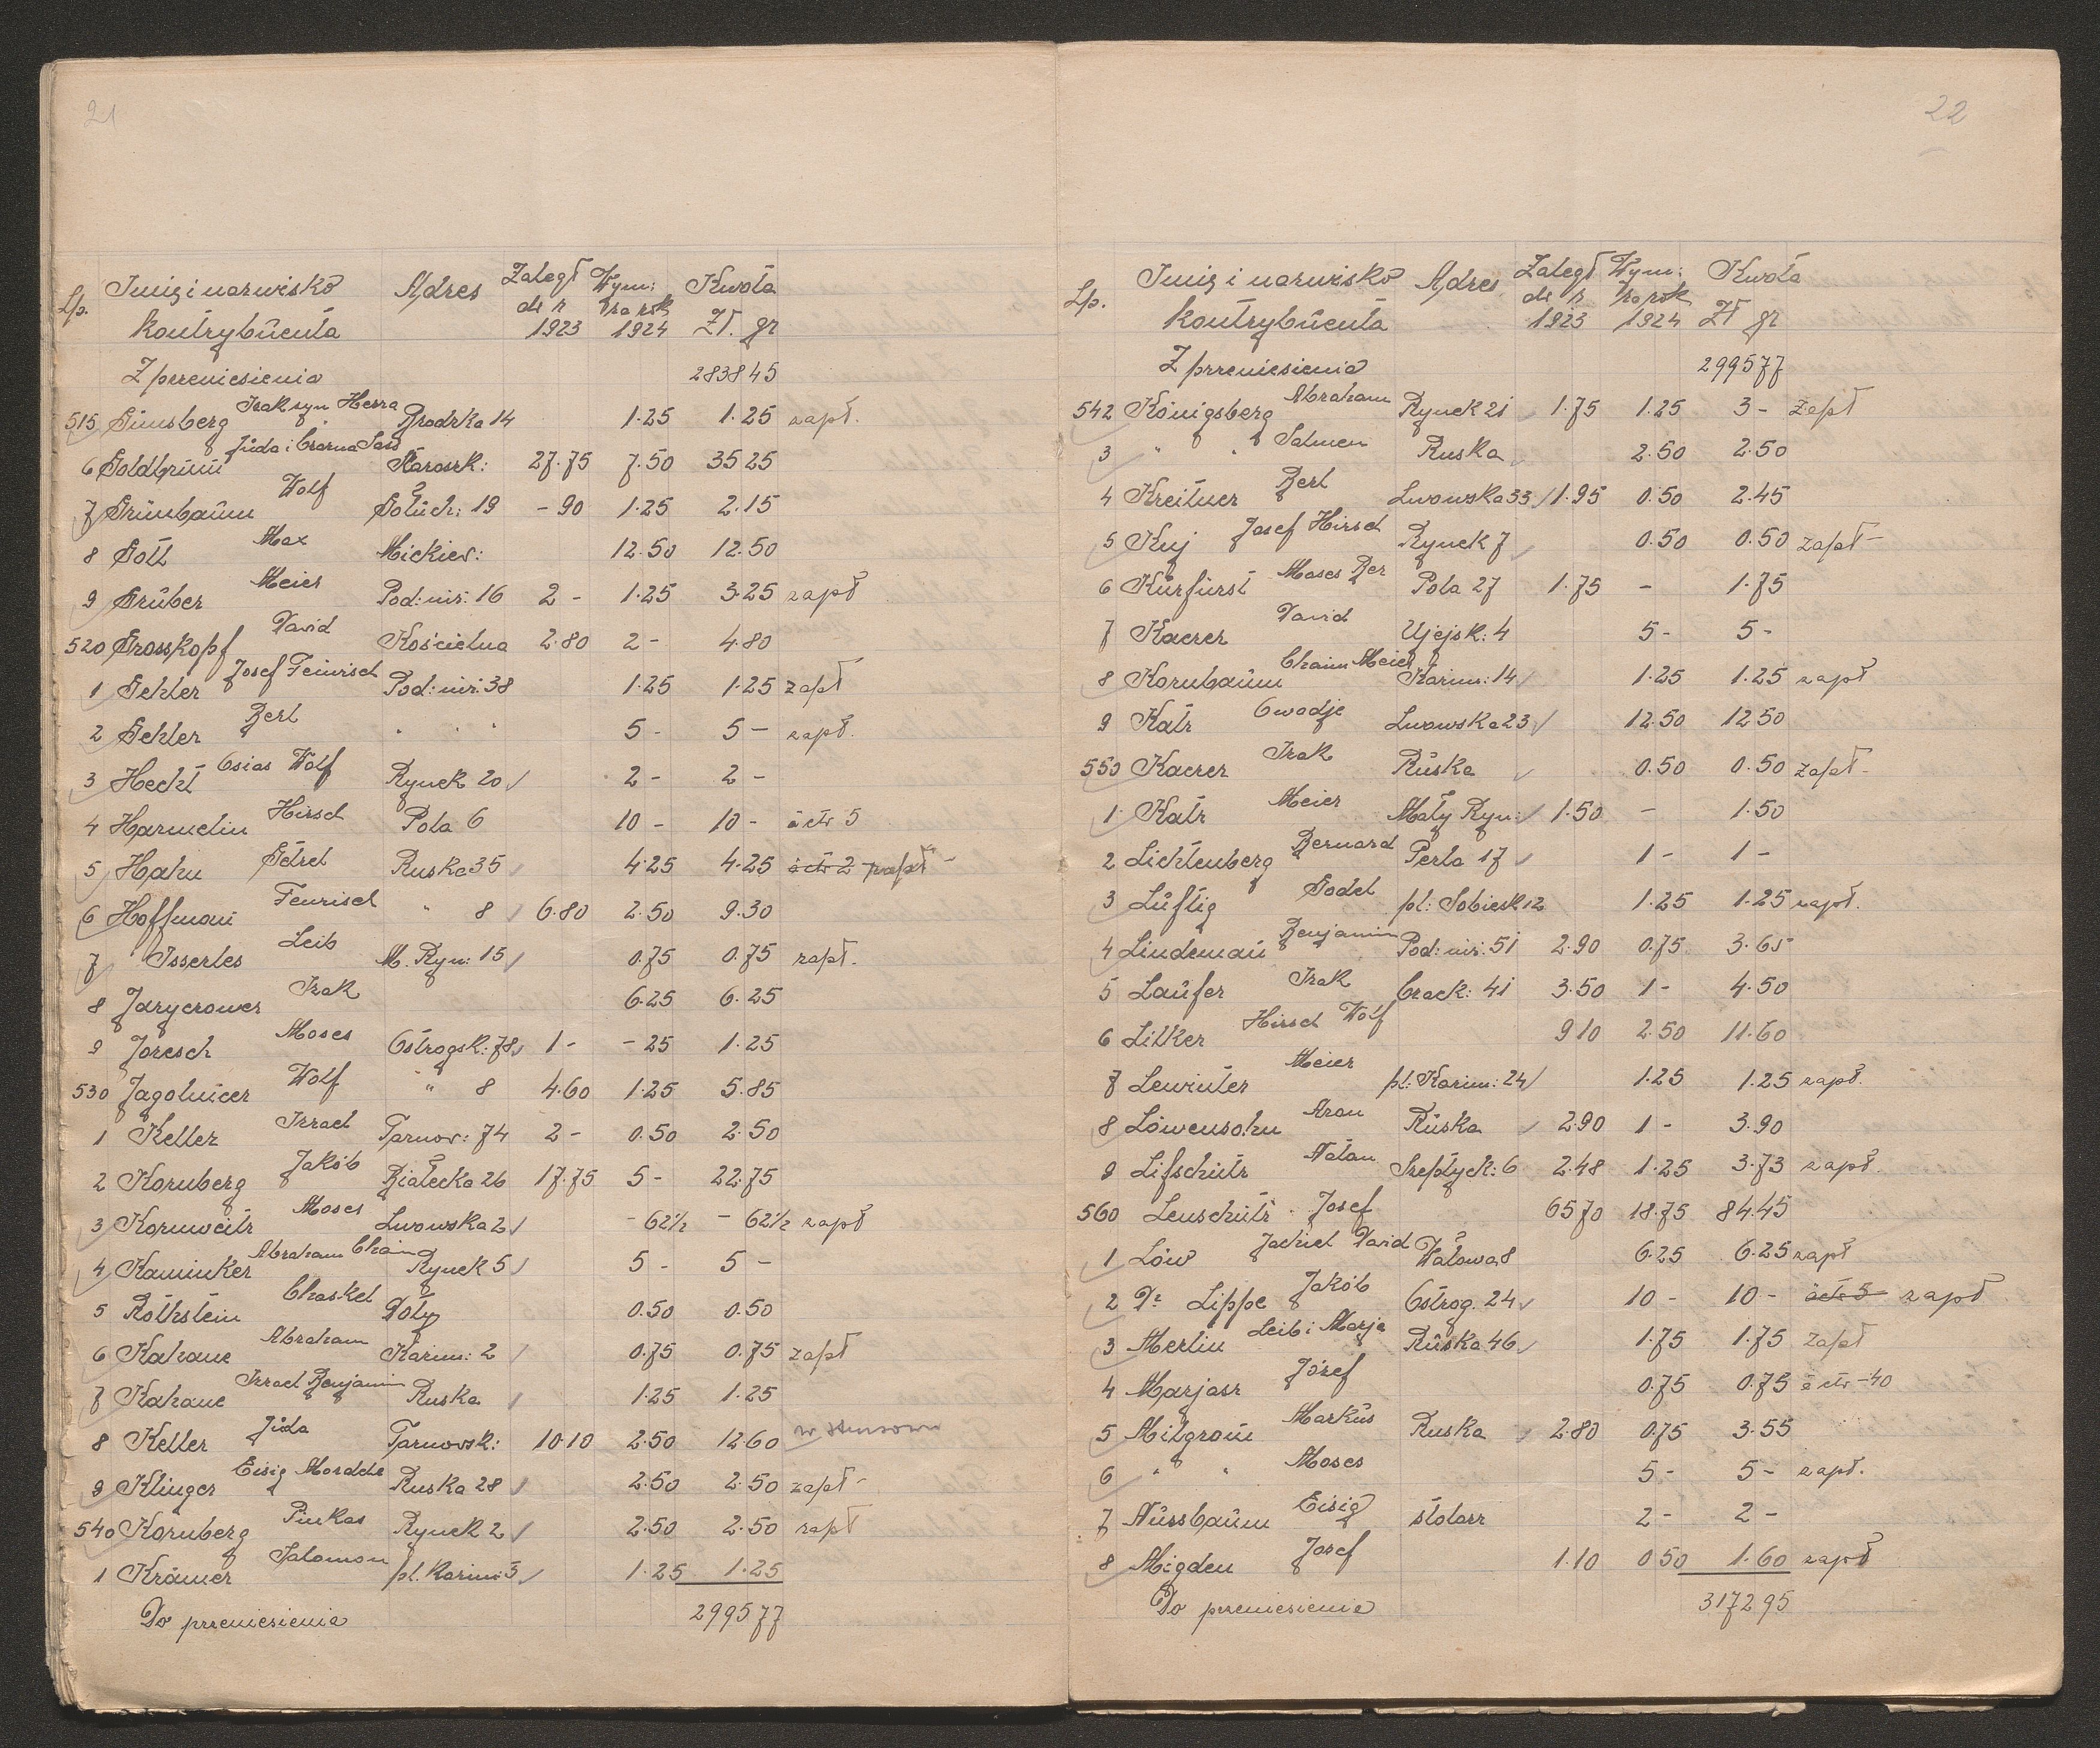 21
Lp. Imię i nazwisko kontrybuenta Adres Zaległ de r 1923 Wym: za rok 1924 Kwota Zł. gr
Z przeniesienia 2838 45
515 Ginsberg Izak syn Herza Brodzka 14 1.25 1.25 zapł.
6 Goldgrün Juda i Czarna Sara Starozk: 27.75 7.50 35 25
7 Grünbaum Wolf Gołuch: 19 - 90 1.25 2.15
8 Gottl Max Mickiew: 12.50 12.50
9 Gruber Meier Pod: niż: 16 2 - 1.25 3.25 zapł
520 Grosskopf David Kościelna 2.80 2 - 4.80
1 Gehler Josef Feiwisch Pod: niż: 38 1.25 1.25 zapł
2 Gehler Berl " " " 5 - 5 - zapł.
3 Hecht Osias Wolf Rynek 20 2 - 2 -
4 Harmelin Hirsch Pola 6 10 - 10 - à cto 5
5 Hahn Getzel Ruska 35 4.25 4.25 à cto 2 zapł -
6 Hoffman Feiwisch " 8 6.80 2.50 9.30
7 Isserles Leib M. Ryn: 15 0.75 0.75 zapł.
8 Jaryczower Izak 6.25 6.25
9 Joresch Moses Ostrogsk: 78 1 - - 25 1.25
530 Jagolnicer Wolf " 8 4.60 1.25 5.85
1 Keller Izrael Tarnow: 74 2 - 0.50 2.50
2 Kornberg Jakób Białecka 26 17.75 5 - 22.75
3 Kornweitz Moses Lwowska 2 - 62½ - 62½ zapł
4 Kaminker Abraham Chaim Rynek 5 5 - 5 -
5 Rothstein Chaskel Doły 0.50 0.50
6 Kahane Abraham Kazim: 2 0.75 0.75 zapł
7 Kahane Izrael Benjamin Ruska 1.25 1.25
8 Keller Juda Tarnowsk: 10.10 2.50 12.60
9 Klinger Eisig Mordche Ruska 28 2.50 2.50 zapł -
540 Kornberg Pinkas Rynek 2 2.50 2.50 zapł
1 Krämer Salomon pl. Kazim: 3 1.25 1.25
Do przeniesienia 2995 77
22
Lp. Imię i nazwisko kontrybuenta Adres Zaległ de r 1923 Wym: za rok 1924 Kwota Zł gr
Z przeniesienia 2995 77
542 Königsberg Abraham Rynek 21 1.75 1.25 3 - zapł
3 " " Salmen Ruska 2.50 2.50
4 Kreitner Berl Lwowska 33 1.95 0.50 2.45
5 Kuj Josef Hirsch Rynek 7 0.50 0.50 zapł -
6 Kurfürst Moses Ber Pola 27 1.75 - 1.75
7 Kaczer David Ujejsk: 4 5 - 5 -
8 Kornbaum Chaim Meier Kazim: 14 1.25 1.25 zapł
9 Katz Owadje Lwowska 23 12.50 12.50
550 Kaczer Izak Ruska 0.50 0.50 zapł -
1 Katz Meier Mały Ryn: 1.50 - 1.50
2 Lichtenberg Bernard Perla 17 1 - 1 -
3 Luftig Godel pl: Sobiesk 12 1.25 1.25 zapł.
4 Lindeman Benjamin Pod: niż: 51 2.90 0.75 3.65
5 Laufer Izak Czack: 41 3.50 1 - 4.50
6 Lilker Hirsch Wolf 9 10 2.50 11.60
7 Lewinter Meier pl: Kazim: 24 1.25 1.25 zapł.
8 Löwensohn Aron Ruska 2.90 1 - 3.90
9 Lifschütz Natan Szeptyck: 6 2.48 1.25 3.73 zapł.
560 Lenschütz Josef 65 70 18.75 84.45
1 Löw Jachiel David Wałowa 8 6.25 6.25 zapł
2 Dr Lippe Jakób Ostrog. 24 10 - 10 - à cto 5 zapł
3 Merlin Leib i Marja Ruska 46 1.75 1.75 zapł
4 Marjasz Józef 0.75 0.75 à cto - 40
5 Milgrom Markus Ruska 2.80 0.75 3.55
6 " " Moses 5 - 5 - zapł.
7 Nussbaum Eisig stolarz 2 - 2 -
8 Migden Josef 1.10 0 50 1.60 zapł
Do przeniesienia 3172 95